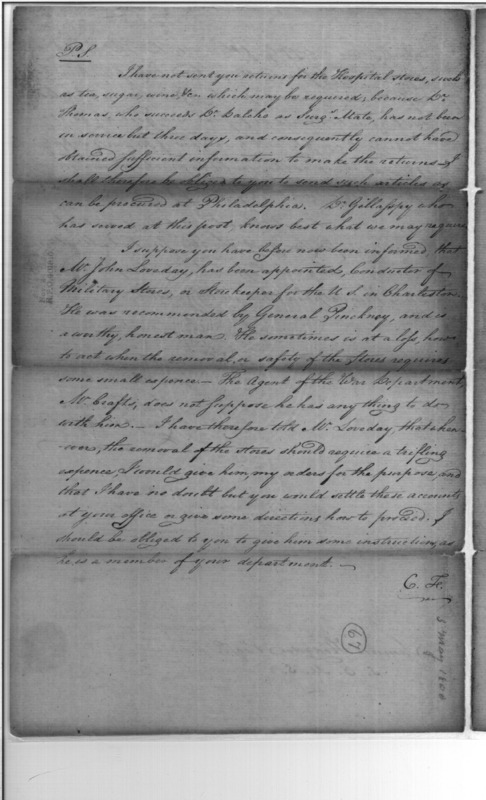 P.S
I have not sent you returns for the Hospital stores, such
as tea, sugar, wine, &c. which may be required; because Dr.
Thomas, who succeeds Dr. Calehe as Surgs. Mate, has not been
in service but three days, and consequently cannot have
obtained sufficient information to make the returns. I
shall therefore be obliged to you to send such articles as
can be procured at Philadelphia. Dr. Gillasspy who
has served at this post, knows best what we may require.
I suppose you have before now been informed, that
Mr. John Loveday, has been appointed, Conductor of
Military Stores, or Storekeeper for the U.S. in Charleston.
He was recommended by General Pinckney, and is
a worthy, honest man. He sometimes is at a loss, how
to act when the removal, or safety of the Stores requires
some small expence — The Agent of the War Department,
Mr. Crafts, does not suppose he has any thing to do
with him. — I have therefore told Mr. Loveday that when-
ever, the removal of the stores should require a trifling
expence, I would give him, my orders for the purpose, and
that I have no doubt but you would settle these accounts
at your office or give some directions how to proceed. I
should be obliged to you to give him some instruction, as
he is a member of your department. —
C. F.
67
5 May 1800